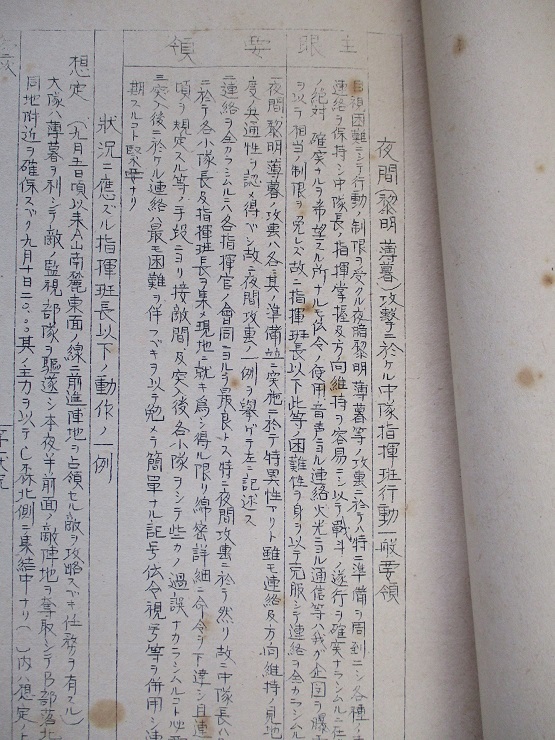 夜間(黎明薄暮)攻撃ニ於ケル中隊指揮班行動一般要領
主眼
目視困難ニシテ行動ノ制限ヲ受クル夜暗黎明薄暮等ノ攻撃ニ於テハ特ニ準備ヲ周到ニシ各種ノ
連絡ヲ保持シ中隊長ノ指揮掌握及方向維持ヲ容易ニシ以テ戦斗ノ遂行ヲ確実ナラシムルニ在
ノ絶対確実ナルヲ希望スル所ナルモ伝令ノ使用音声ニヨル連絡火光ニヨル通信等ハ我ガ企図ヲ曝
ヲ以テ相当ノ制限ヲ免レズ故ニ指揮班長以下此等ノ困難性ヲ身ヲ以テ克服シテ連絡ヲ全カラシム
要領
一夜間黎明薄暮ノ攻撃ハ各〻其ノ準備並ニ実施ニ於テ特異性アリト雖モ連絡及方向維持ノ見地
度ノ共通性ヲ認メ得ベシ故ニ夜間攻撃ノ一例ヲ挙ゲテ左ニ記述ス
二連絡ヲ全カラシムルニハ各指揮官ノ會同ニヨルヲ最良トス特ニ夜間攻撃ニ於テ然リ故ニ中隊長ハ
ニ於テ各小隊長及指揮班長ヲ集メ現地ニ就キ為シ得ル限リ綿密詳細ニ命令ヲ下達シ且連
項ヲ規定スル等ノ手段ニヨリ接敵間及突入後各小隊ヲシテ些カノ過誤ナカラシムルコト必要
三突入後ニ於ケル連絡ハ最モ困難ヲ伴フベキヲ以テ勉メテ簡單ナル記号伝令視号等ヲ併用シ連
期スルコト緊要ナリ
狀況ニ應ズル指揮班長以下ノ動作ノ一例
想定
(九月 日頃以来 山南麓東面ノ線ニ前進陣地ヲ占領セル敵ヲ攻略スベキ任務ヲ有スル)
大隊ハ薄暮ヲ利シテ敵ノ監視部隊ヲ驅逐シ本夜半前面ノ敵陣地ヲ奪取シテB部落北
同地附近ヲ確保スベク九月十日二〇、〇〇其ノ主力ヲ以テ 森北側ニ集結中ナリ( )内ハ想定ノ